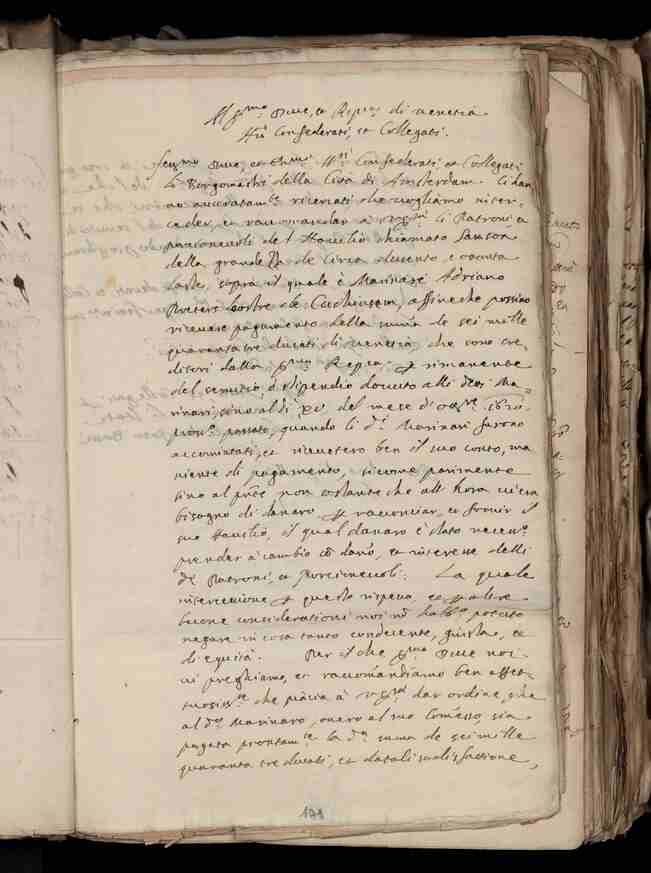 Al Ser.mo Duce, et Rep.ca di Venetia
N.ri Confederati, et Collegati.
Ser.mo Duce, et Ill.mi N.ri Confederati et Collegati
Li Borgomastri della Città di Amsterdam Ci han
no accuratam.te ricercati che vogliamo inter=
ceder, et raccomandar à li Patroni et
partionevoli del Navilio chiamato Sansone
della grande di circa ducento, et ottanta
laste, sopra il quale è Marinaro Adriano
affinche possino
ricevere pagamento della summa de sei mille
quaranta tre ducati di Venetia, che sono cre=
ditori dalla Ser.ma Rep.ca p rimanente
del servitio, ò stipendio dovuto alli detti Ma=
rinari, sino al dì XV del mese di
passato, quando li d.ti Marinari furono
accomiatati, et ricevetero ben il suo conto, ma
niente di pagamento, sicome parimente
sino al pñte non ostante che all' hora vi era
bisogno di danaro p racconciar, et fornir il
suo Navilio, il qual danaro è stato necess.o
prender à cambio cõ danõ, et interesse delli
d.ti Patroni, et Partionevoli. La quale
intercessione p questo rispetto, et p altre
buone considerationi noi nõ habb.mo potuto
negare in cosa tanto condecente, giusta, et
di equità. Per il che Ser.mo Duce noi
vi preghiamo, et raccomandiamo ben affet=
tuosis.te che piacia à dar ordine, che
al d.to Marinaro, overo al suo Comesso, sia
pagata prontam.te la d.ta suma de sei mille
quaranta tre ducati, et data li sodisfattione,
171